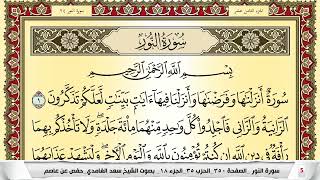 سُورَةُ النُّورِ
بِسْمِ ٱللَّهِ ٱلرَّحْمَٰنِ ٱلرَّحِيمِ
سُورَةٌ أَنزَلْنَٰهَا وَفَرَضْنَٰهَا وَأَنزَلْنَا فِيهَآ ءَايَٰتٍۭ بَيِّنَٰتٍ لَّعَلَّكُمْ تَذَكَّرُونَ ١
ٱلزَّانِيَةُ وَٱلزَّانِى فَٱجْلِدُوا۟ كُلَّ وَٰحِدٍ مِّنْهُمَا مِا۟ئَةَ جَلْدَةٍ وَلَا تَأْخُذْكُم بِهِمَا
رَأْفَةٌ فِى دِينِ ٱللَّهِ إِن كُنتُمْ تُؤْمِنُونَ بِٱللَّهِ وَٱلْيَوْمِ ٱلْءَاخِرِ وَلْيَشْهَدْ عَذَابَهُمَا
سورة النور . الصفحة ٣٥٠ . الحزب ٣٥ . الجزء ١٨ . بصوت الشيخ سعد الغامدي . حفص عن عاصم 5